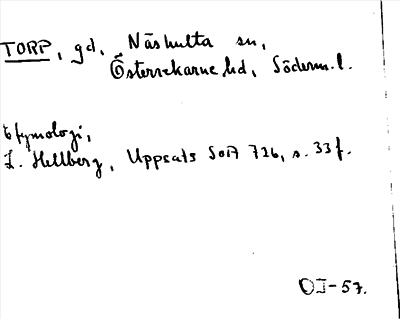 TORP, gd, Näshulta sn,
Österrekarne hd, Söderm. l.
Etymologi,
L. Hellberg, Uppsats SOA 726, s. 33 f.
OI-57.